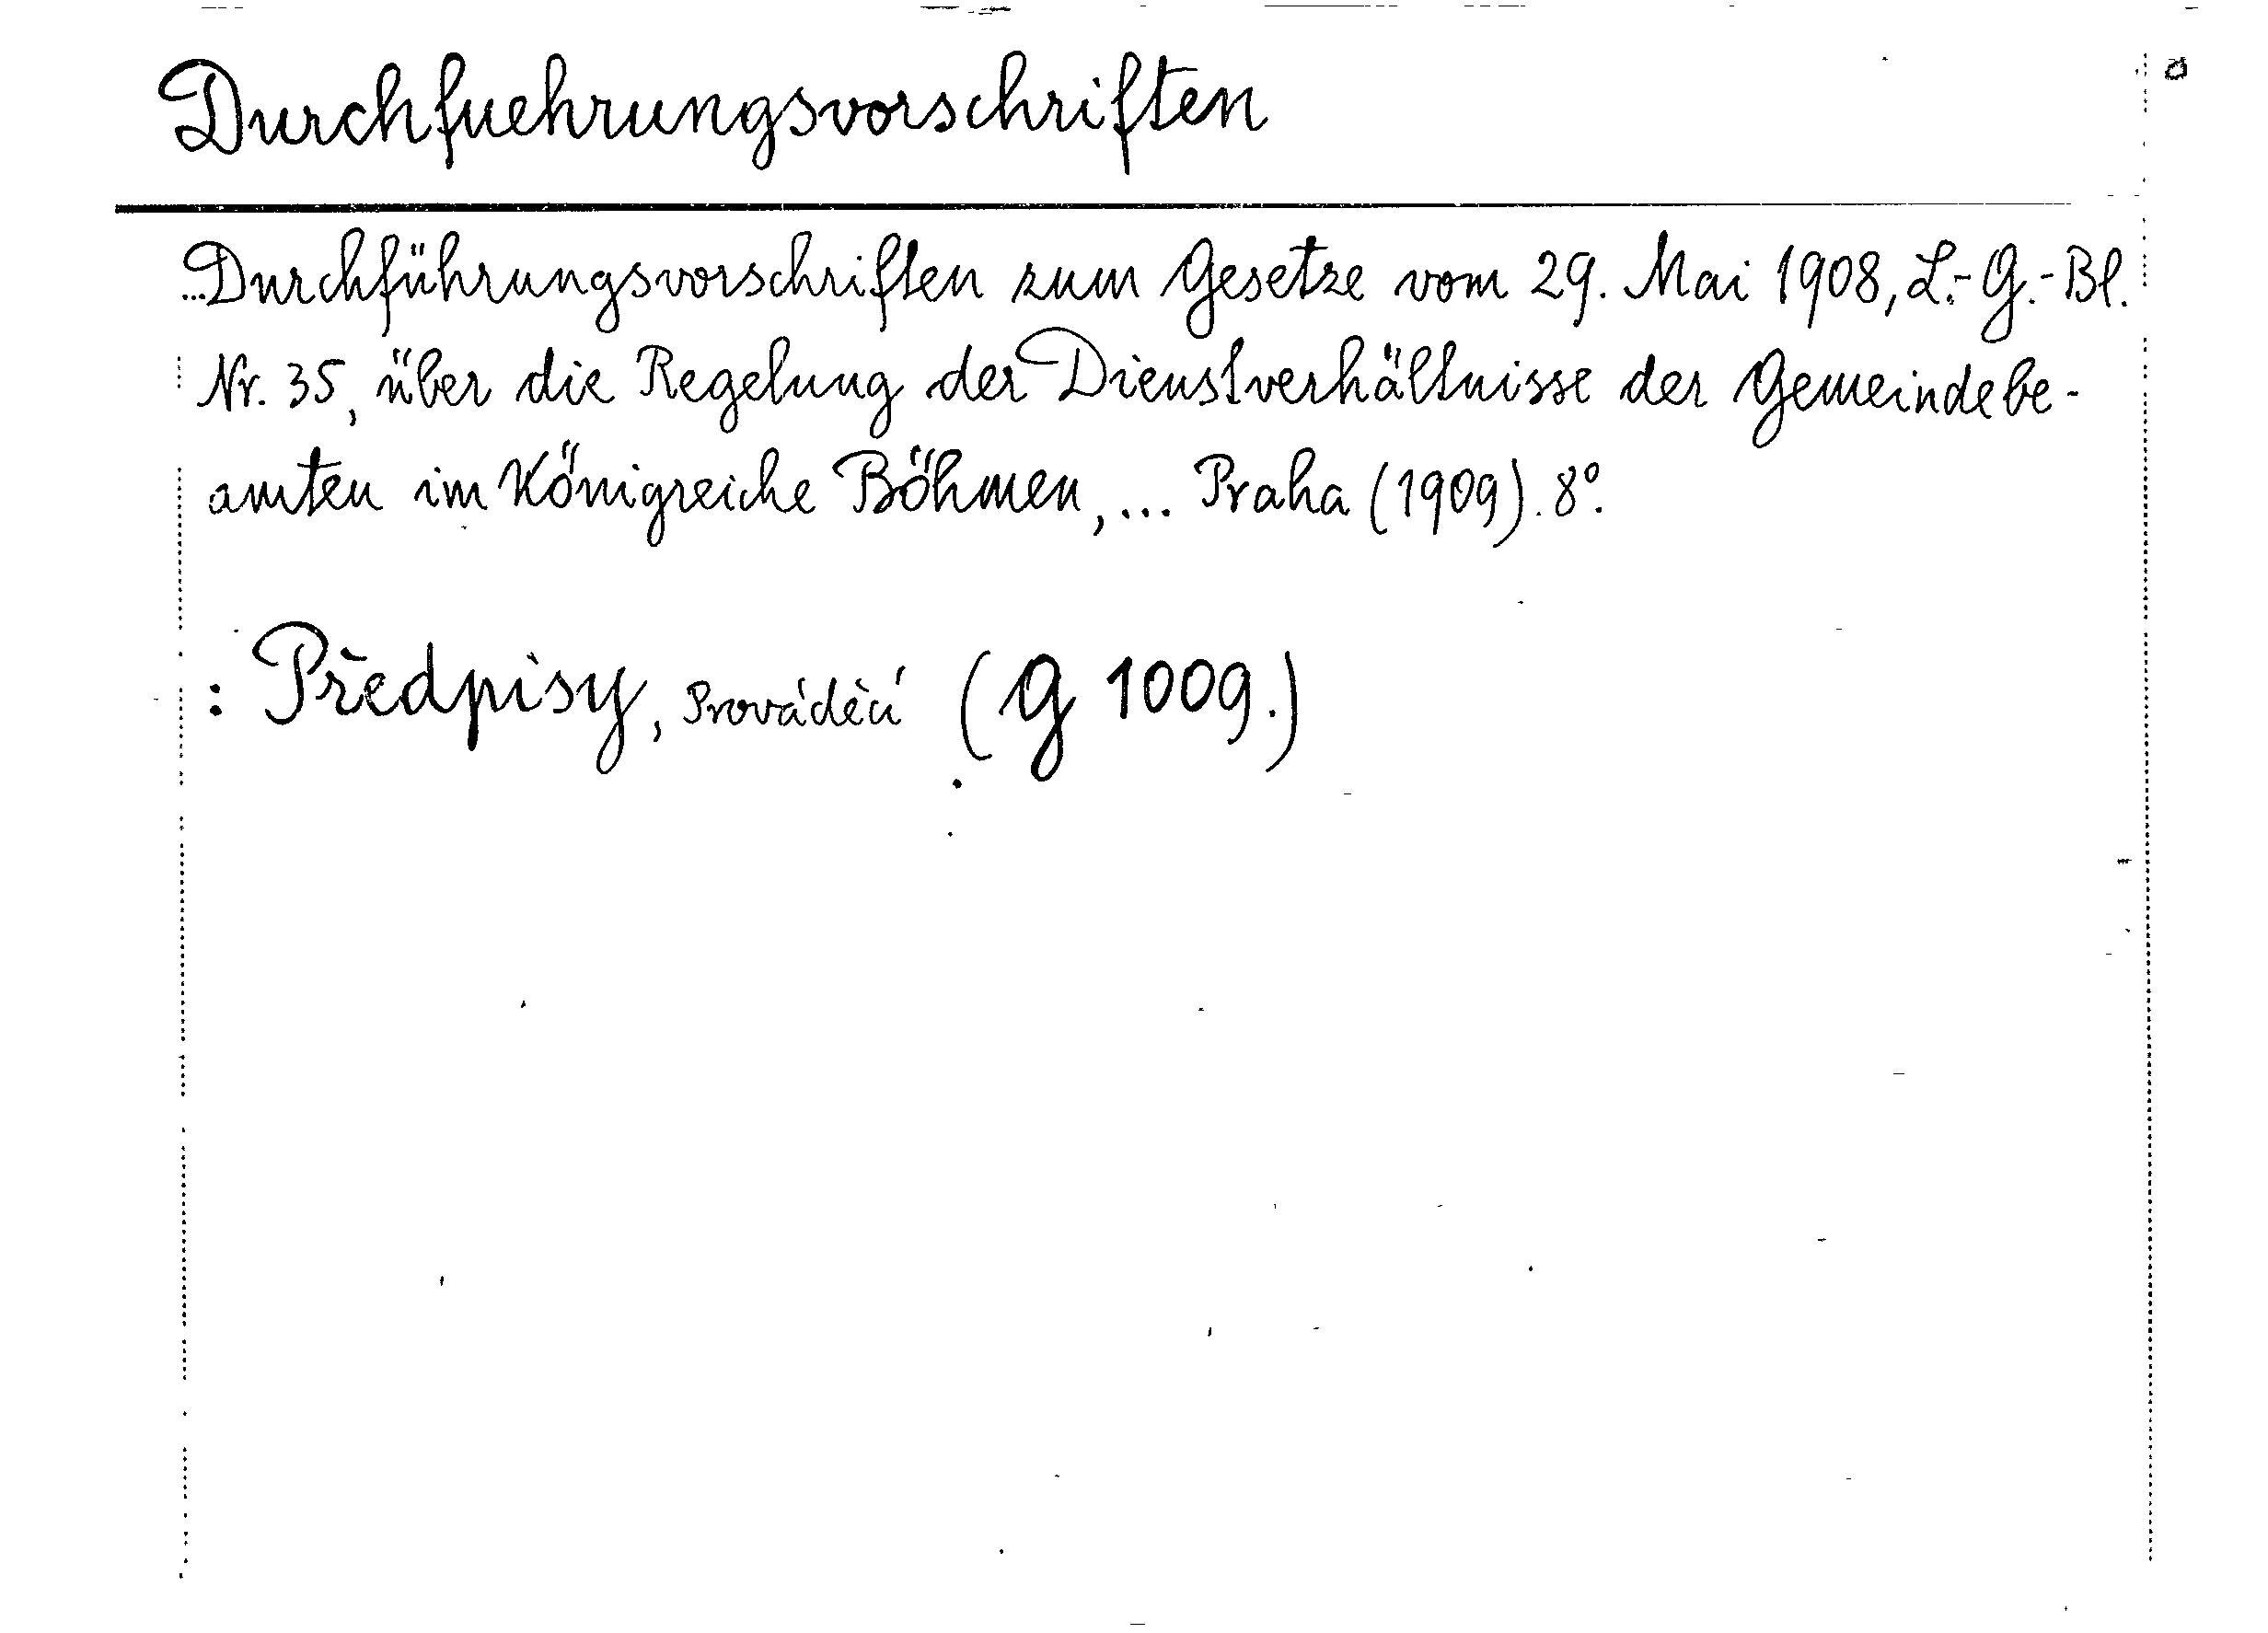 Durchfuehrungsvorschriften
...Durchführungsvorschriften zum Gesetze vom 29. Mai 1908, L.-G.-Bl.
Nr. 35, über die Regelung der Dienstverhältnisse der Gemeindebe-
amten im Königreiche Böhmen, ... Praha (1909). 8°.
: Předpisy, Prováděcí (G 1009.)